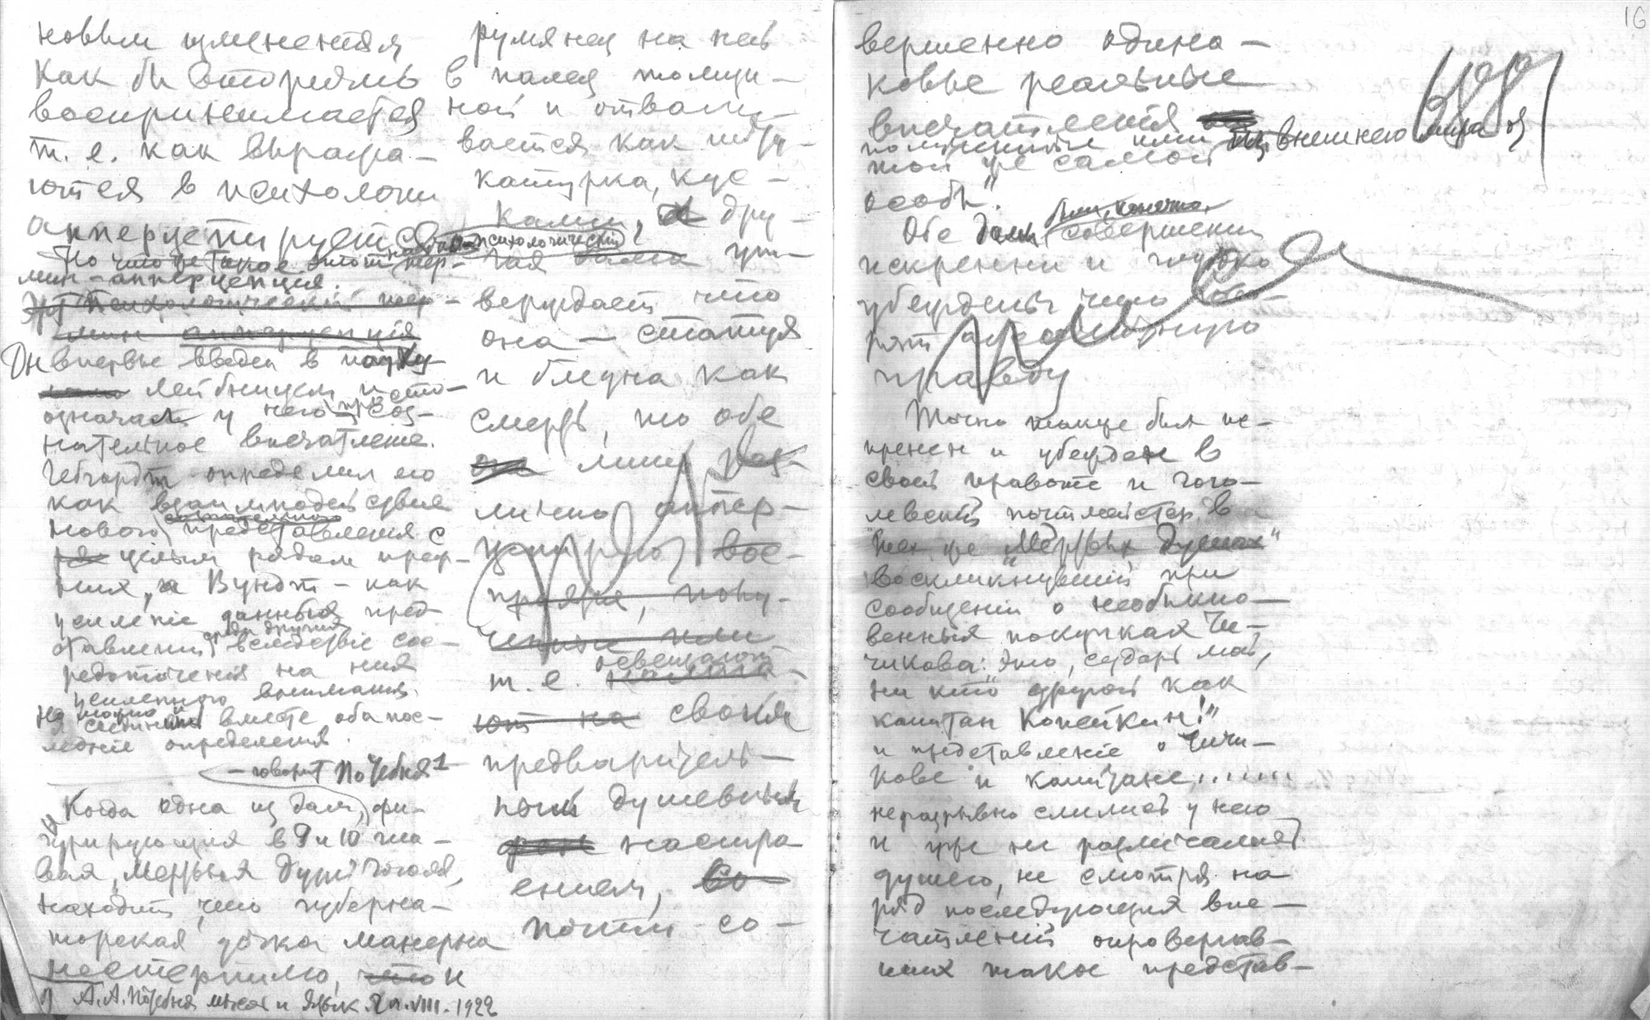 новым изменения
как бы вторгаясь
воспринимается
т. е. как выража-
ются в психологии
апперцепируется
Но что же такое этот тер-
мин - апперцепция.
психологический тер-
мин апперцепція
Он впервые введен в науку
Лейбницем и
означал у него соз-
нательное впечатление.
Гебгардт определил его
как взаимнодействие
нового представления с
целым рядом преж-
них, а Вундт - как
усиление данныя пред-
ставления вследствіе сос-
редоточения на них
усиленного внимания.
вместе оба пос-
ледние определения.
— говорит Потебня 1
„Когда одна из дам, фи-
гурирующия в 9 и 10 гла-
вах „Мертвыя Души" Гоголя,
находит, что губерна-
торская дочка манерна
нестерпимо, и
1) А. А. Потебня Мысль и Язык 1922
румянец на ней
в палец толщи-
ной и отвали-
вается как шту-
катурка, кус-
ками, а дру-
гая дама ут-
верждает что
она — статуя
и бледна как
смерть, то обе
лишь раз-
лично аппер-
ципируют вос-
т. е. освещают
своим
предваритель-
ным душевным
настро
ением,
почти со-
16
вершенно одина-
ковые реальные
впечатления
полученные ими из внешнего мира от
той же самой
особы".
Обе дамы были, конечно, совершенно
искренни и глубоко
убеждены что гово-
рят абсолютную
правду
Точно также был ис-
кренен и убежден в
своей правоте и гого-
левский почтмейстер в
тех же „Мертвых душах"
воскликнувший при
сообщении о необыкно-
венныя покупкая Чи-
чикова: „Это, сударь мой,
ни кто другой как
капитан Копейкин!"
и представление о Чичи-
кове и капитане......
неразрывно слились у него
и уже не различались
душею, не смотря на
ряд последующия впе-
чатлений опровергав-
ших такое представ-